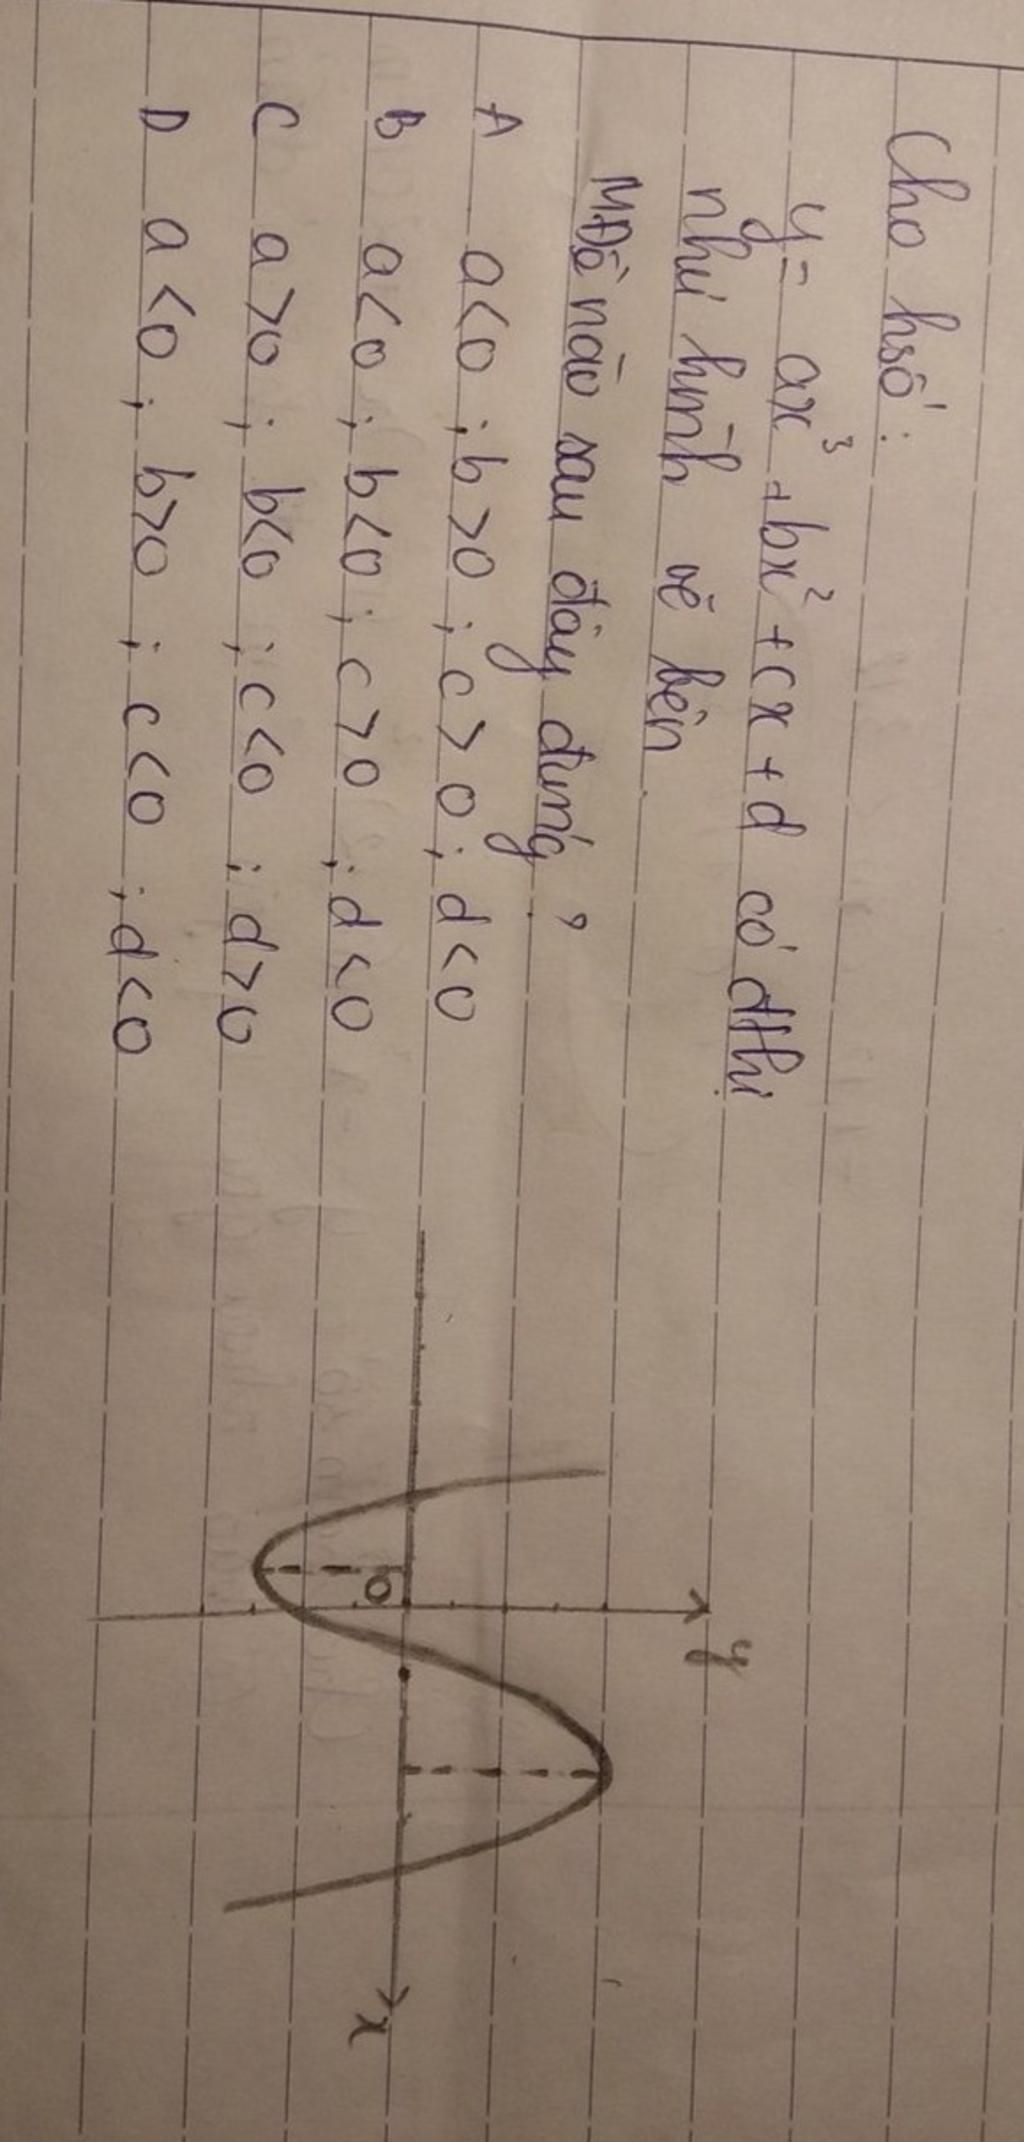 Cho hsố:
y = ax³ + bx² + cx + d có đthị
như hình vẽ bên
MĐề nào sau đây đúng?
A a<0; b>0; c>0; d<0
B a<0; b<0; c>0; d<0
C a>0; b<0; c<0; d>0
D a<0; b>0; c<0; d<0
y
O
x